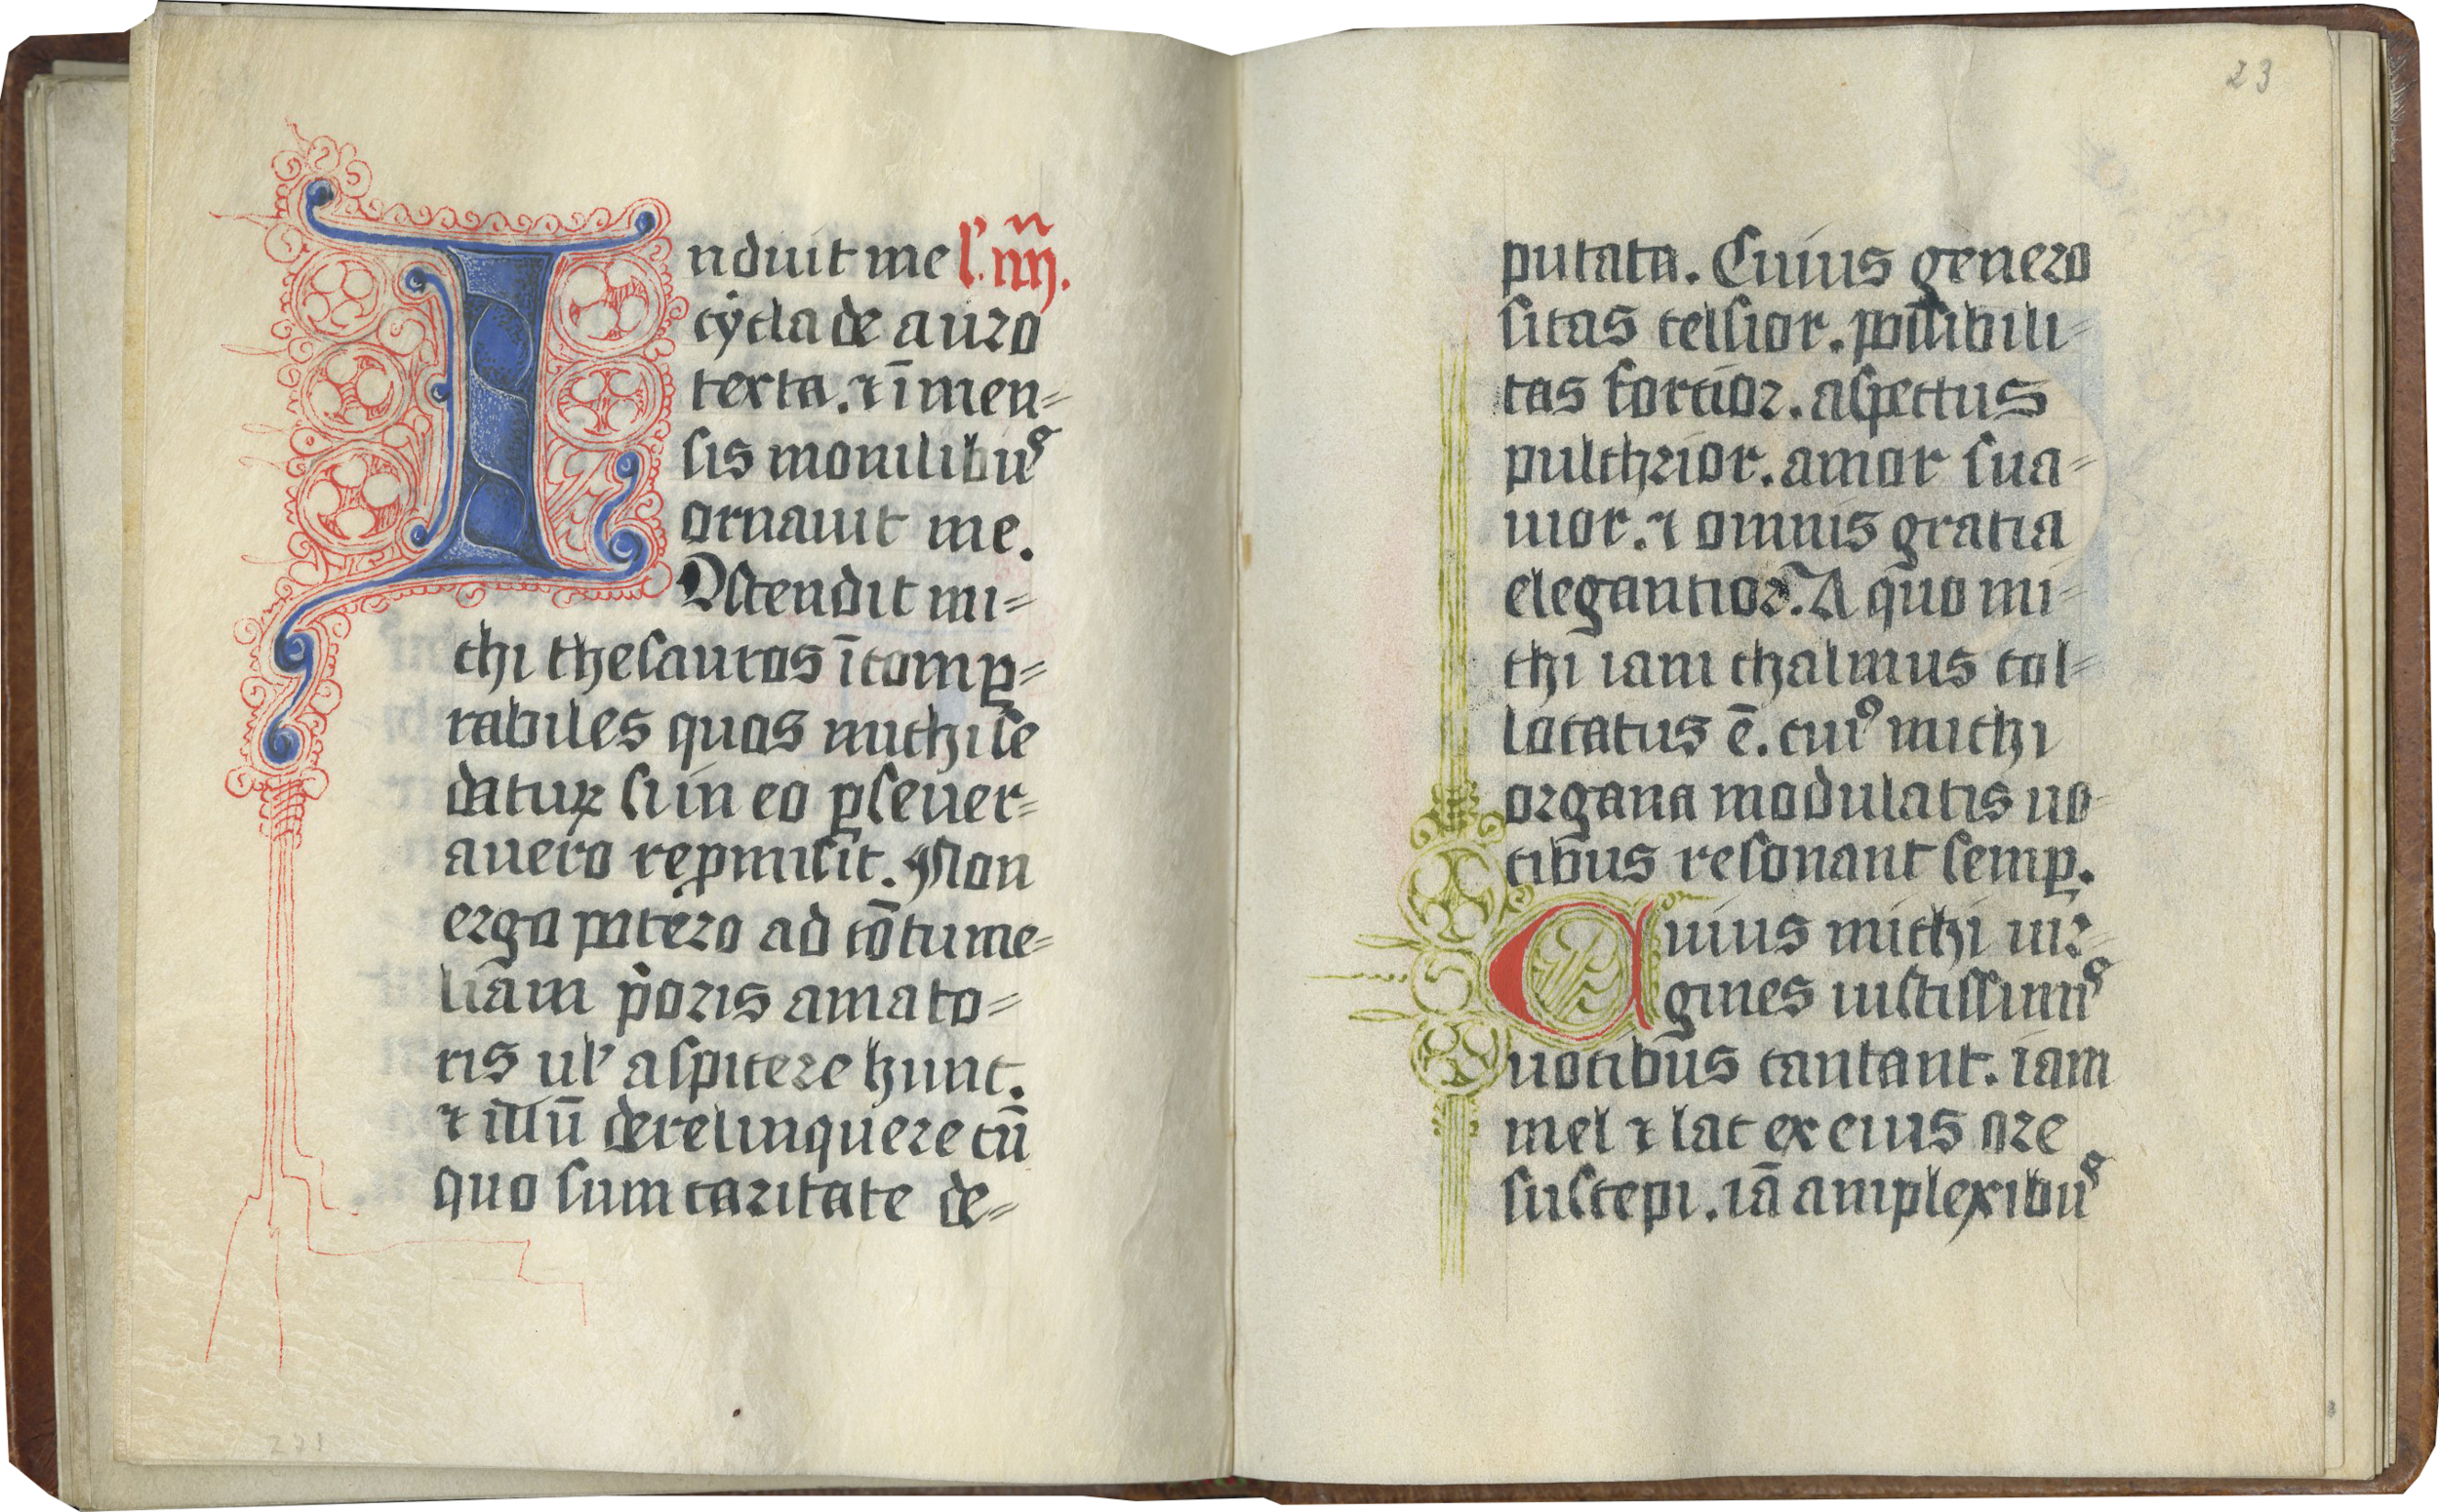 Induit me l'. iiij.
cycla de auro
texta. ⁊ īmen=
sis monilibuꝰ
ornauit me.
Ostendit mi=
chi thesauros īcomꝑ=
rabiles quos michi se
daturꝝ si in eo ꝑseuer=
auero repmisit. Non
ergo potero ad cōtume=
liam p̓oris amato=
ris ul' aspicere hunc.
⁊ illū derelinquere cū
quo sum caritate de=
23
putata. Cuius genero
sitas celsior. possibili=
tas fortior. aspectus
pulchrior. amor sua=
uior. ⁊ omnis gratia
elegantior. A quo mi=
chi iam thalmus col=
locatus ē. cuiꝰ michi
organa modulatis uo=
cibus resonant semꝑ.
Cuius michi uir=
gines iustissimiꝰ
uocibus cantant. iam
mel ⁊ lac ex eius ore
suscepi. iā amplexibuꝰ